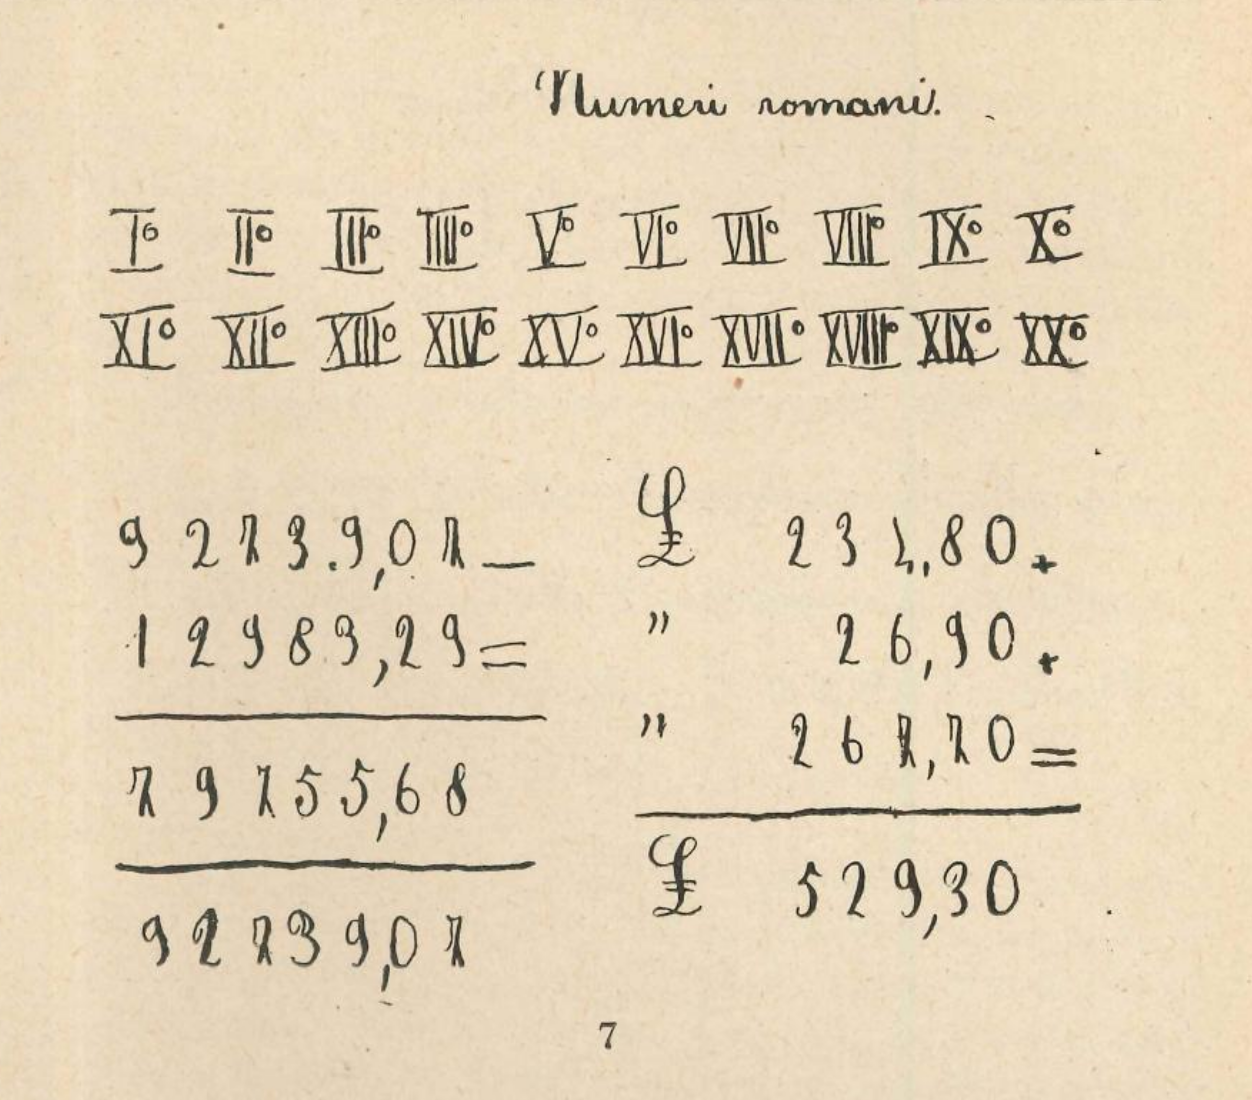 Numeri romani.
I° II° III° IIII° V° VI° VII° VIII° IX° X°
XI° XII° XIII° XIV° XV° XVI° XVII° XVIII° XIX° XX°
9273.9,07 –
12983,29 =
79755,68
92739,07
£ 234,80 +
" 26,90 +
" 267,70 =
£ 529,30
7